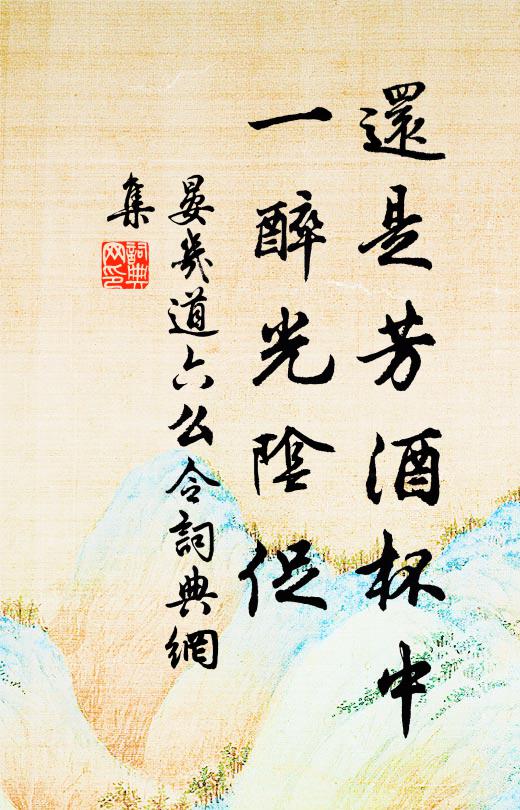 還是芳酒杯中
一醉光陰促
晏幾道六幺令詞典網
集
詞典
网印